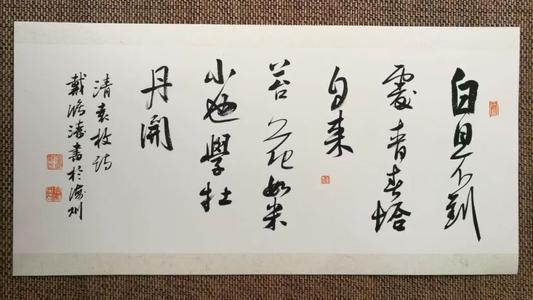 白日不到
處青春恰
自来
苔花如米
小也學牡
丹開
清袁枚诗
戴 書於海州